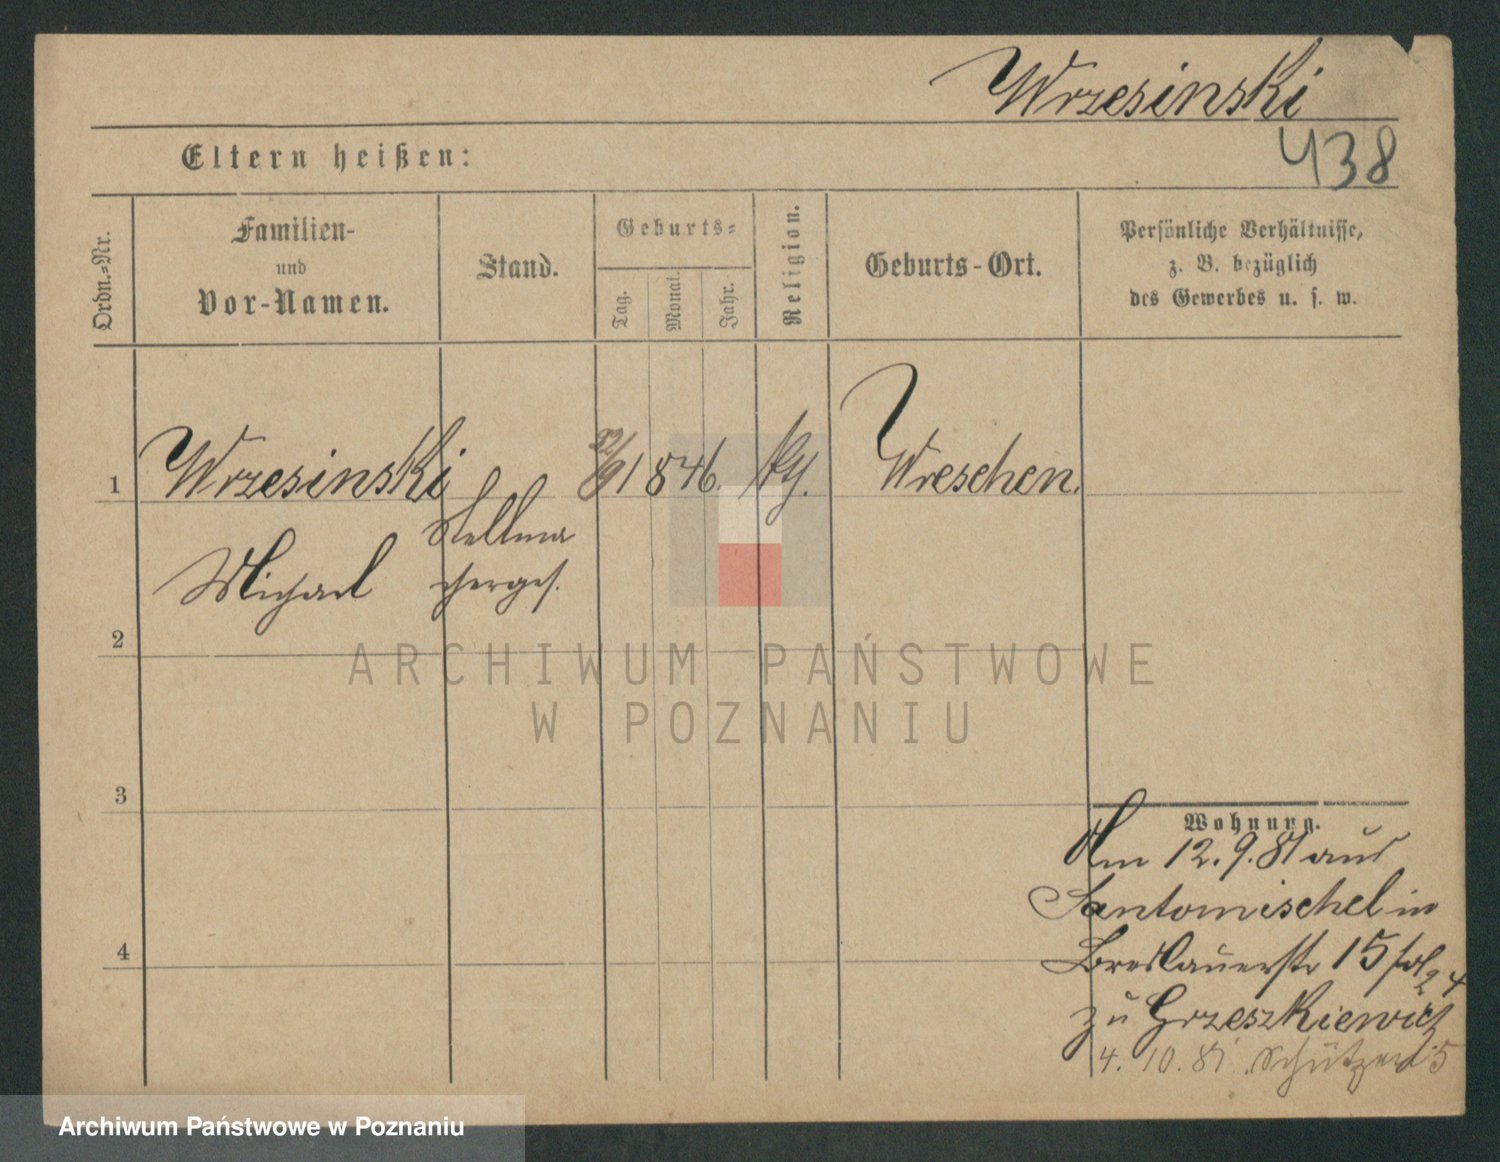 Wrzesinski
438
Eltern heißen:
Ordn.=Nr.
Familien-
und
Vor-Namen.
Stand.
Geburts=
Tag.
Monat.
Jahr.
Religion.
Geburts-Ort.
Persönliche Verhältnisse,
z. B. bezüglich
des Gewerbes u. s. w.
1 Wrzesinski 22/9 1846. Wreschen.
Michael
Stellma
cherges.
2
3
4
ARCHIWUM PAŃSTWOWE
W POZNANIU
Wohnung.
Am 12.9.81 aus
Santomischel in
Breslauerstr 15
zu Grzeszkiewicz
4. 10. 81. Schützenst 5
Archiwum Państwowe w Poznaniu